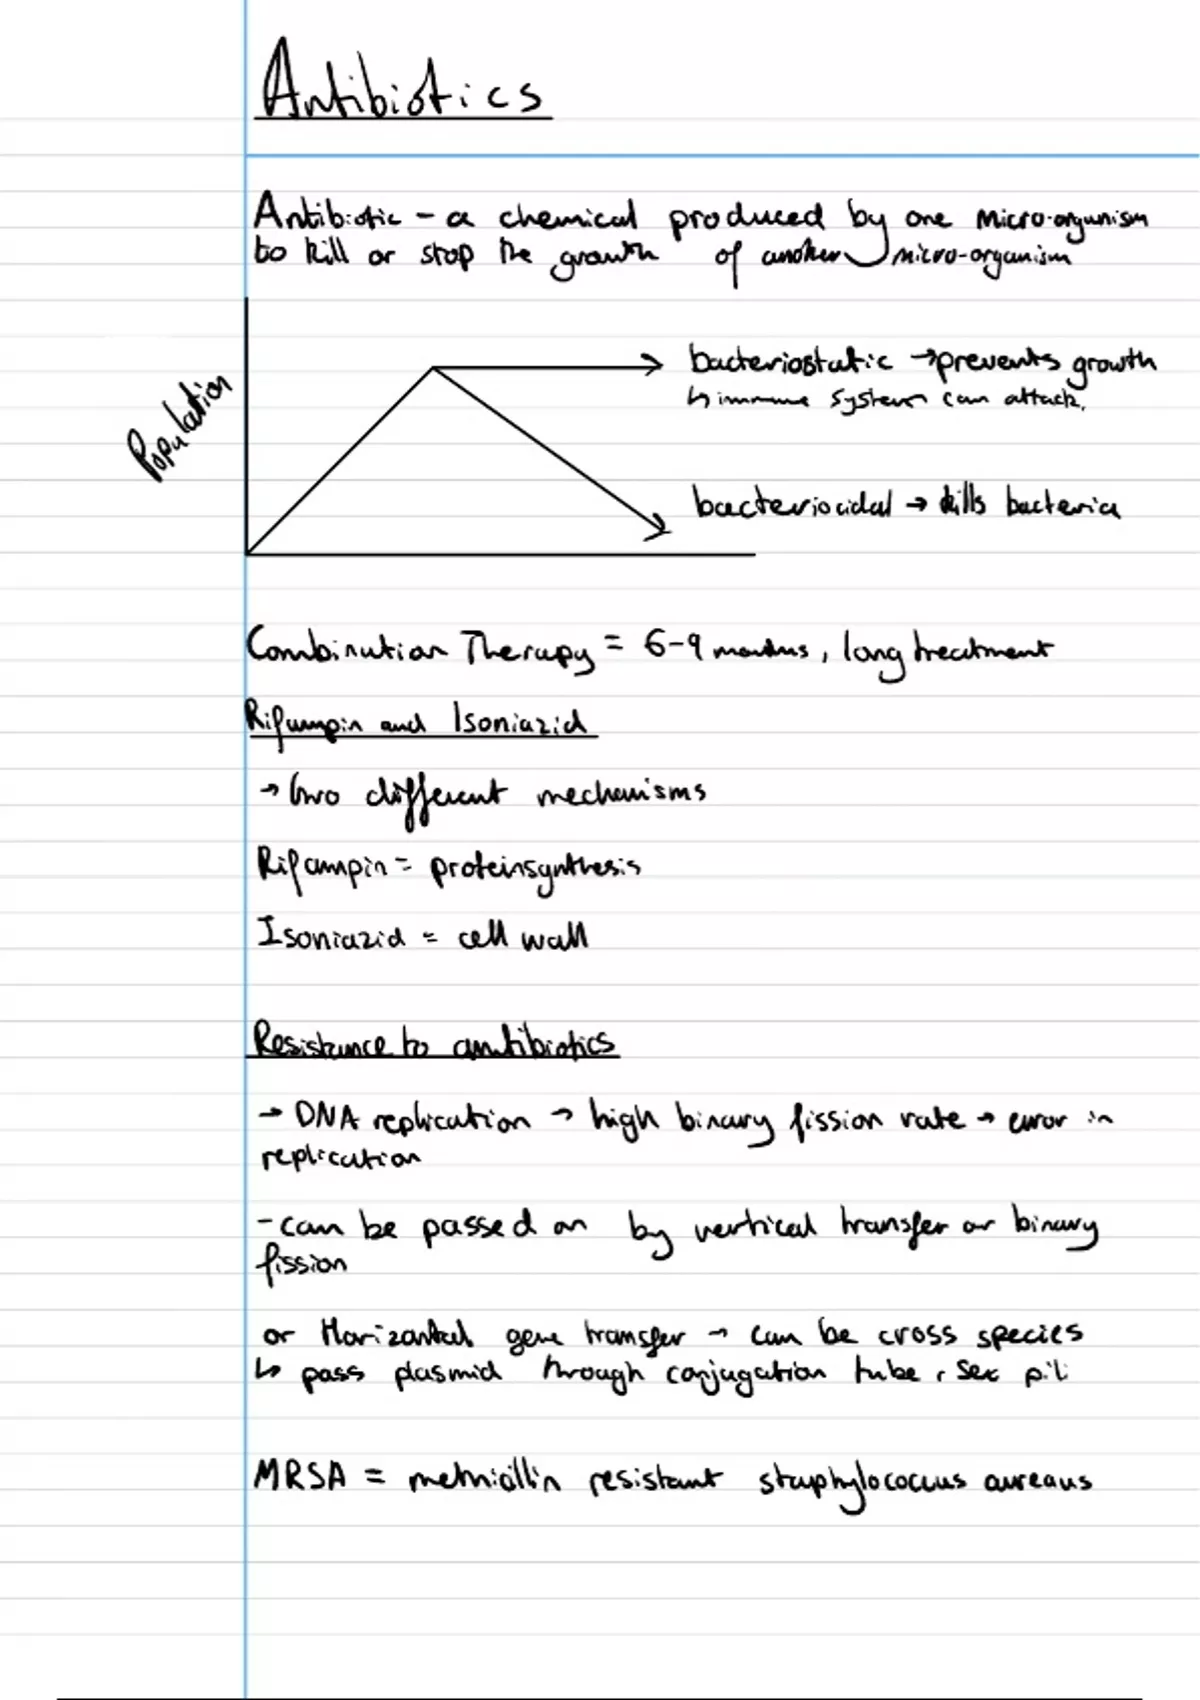 Antibiotics
Antibiotic - a chemical produced by one micro-organism
to kill or stop the growth of another micro-organism
Population
bacteriostatic → prevents growth
↳ immune system can attack.
bacteriocidal → kills bacteria
Combination Therapy = 6-9 months, long treatment
Rifampin and Isoniazid
→ two different mechanisms
Rifampin = protein synthesis
Isoniazid = cell wall
Resistance to antibiotics
→ DNA replication → high binary fission rate → error in
replication
- can be passed on by vertical transfer or binary
fission
or Horizontal gene transfer → can be cross species
↳ pass plasmid through conjugation tube, sex pili
MRSA = methicillin resistant staphylococcus aureaus